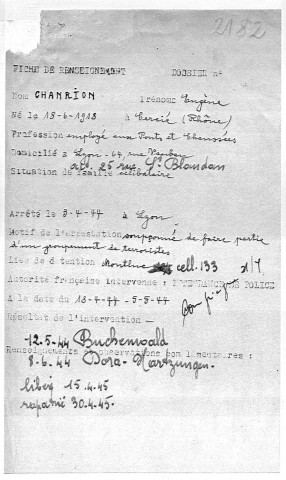 2182
FICHE DE RENSEIGNEMENT DOSSIER n°
Nom CHANRION Prénoms Eugène
Né le 18-6-1918 à Cercié (Rhône)
Profession employé aux Ponts et Chaussées
Domicilié à Lyon - 64, rue
act. 25 rue St Blandan
Situation de famille célibataire
Arrêté le 8-4-44 à Lyon
Motif de l'arrestation soupçonné de faire partie
d'un groupement de terroristes
Lieu de détention Montluc cell. 133
Autorité française intervenue : INTENDANCE DE POLICE
A la date du 18-4-44 - 5-5-44
Résultat de l'intervention —
12.5.44 Buchenwald
Renseignements et observations complémentaires :
8-6-44 Dora - Hartzungen.
libéré 15.4.45
rapatrié 30.4.45.